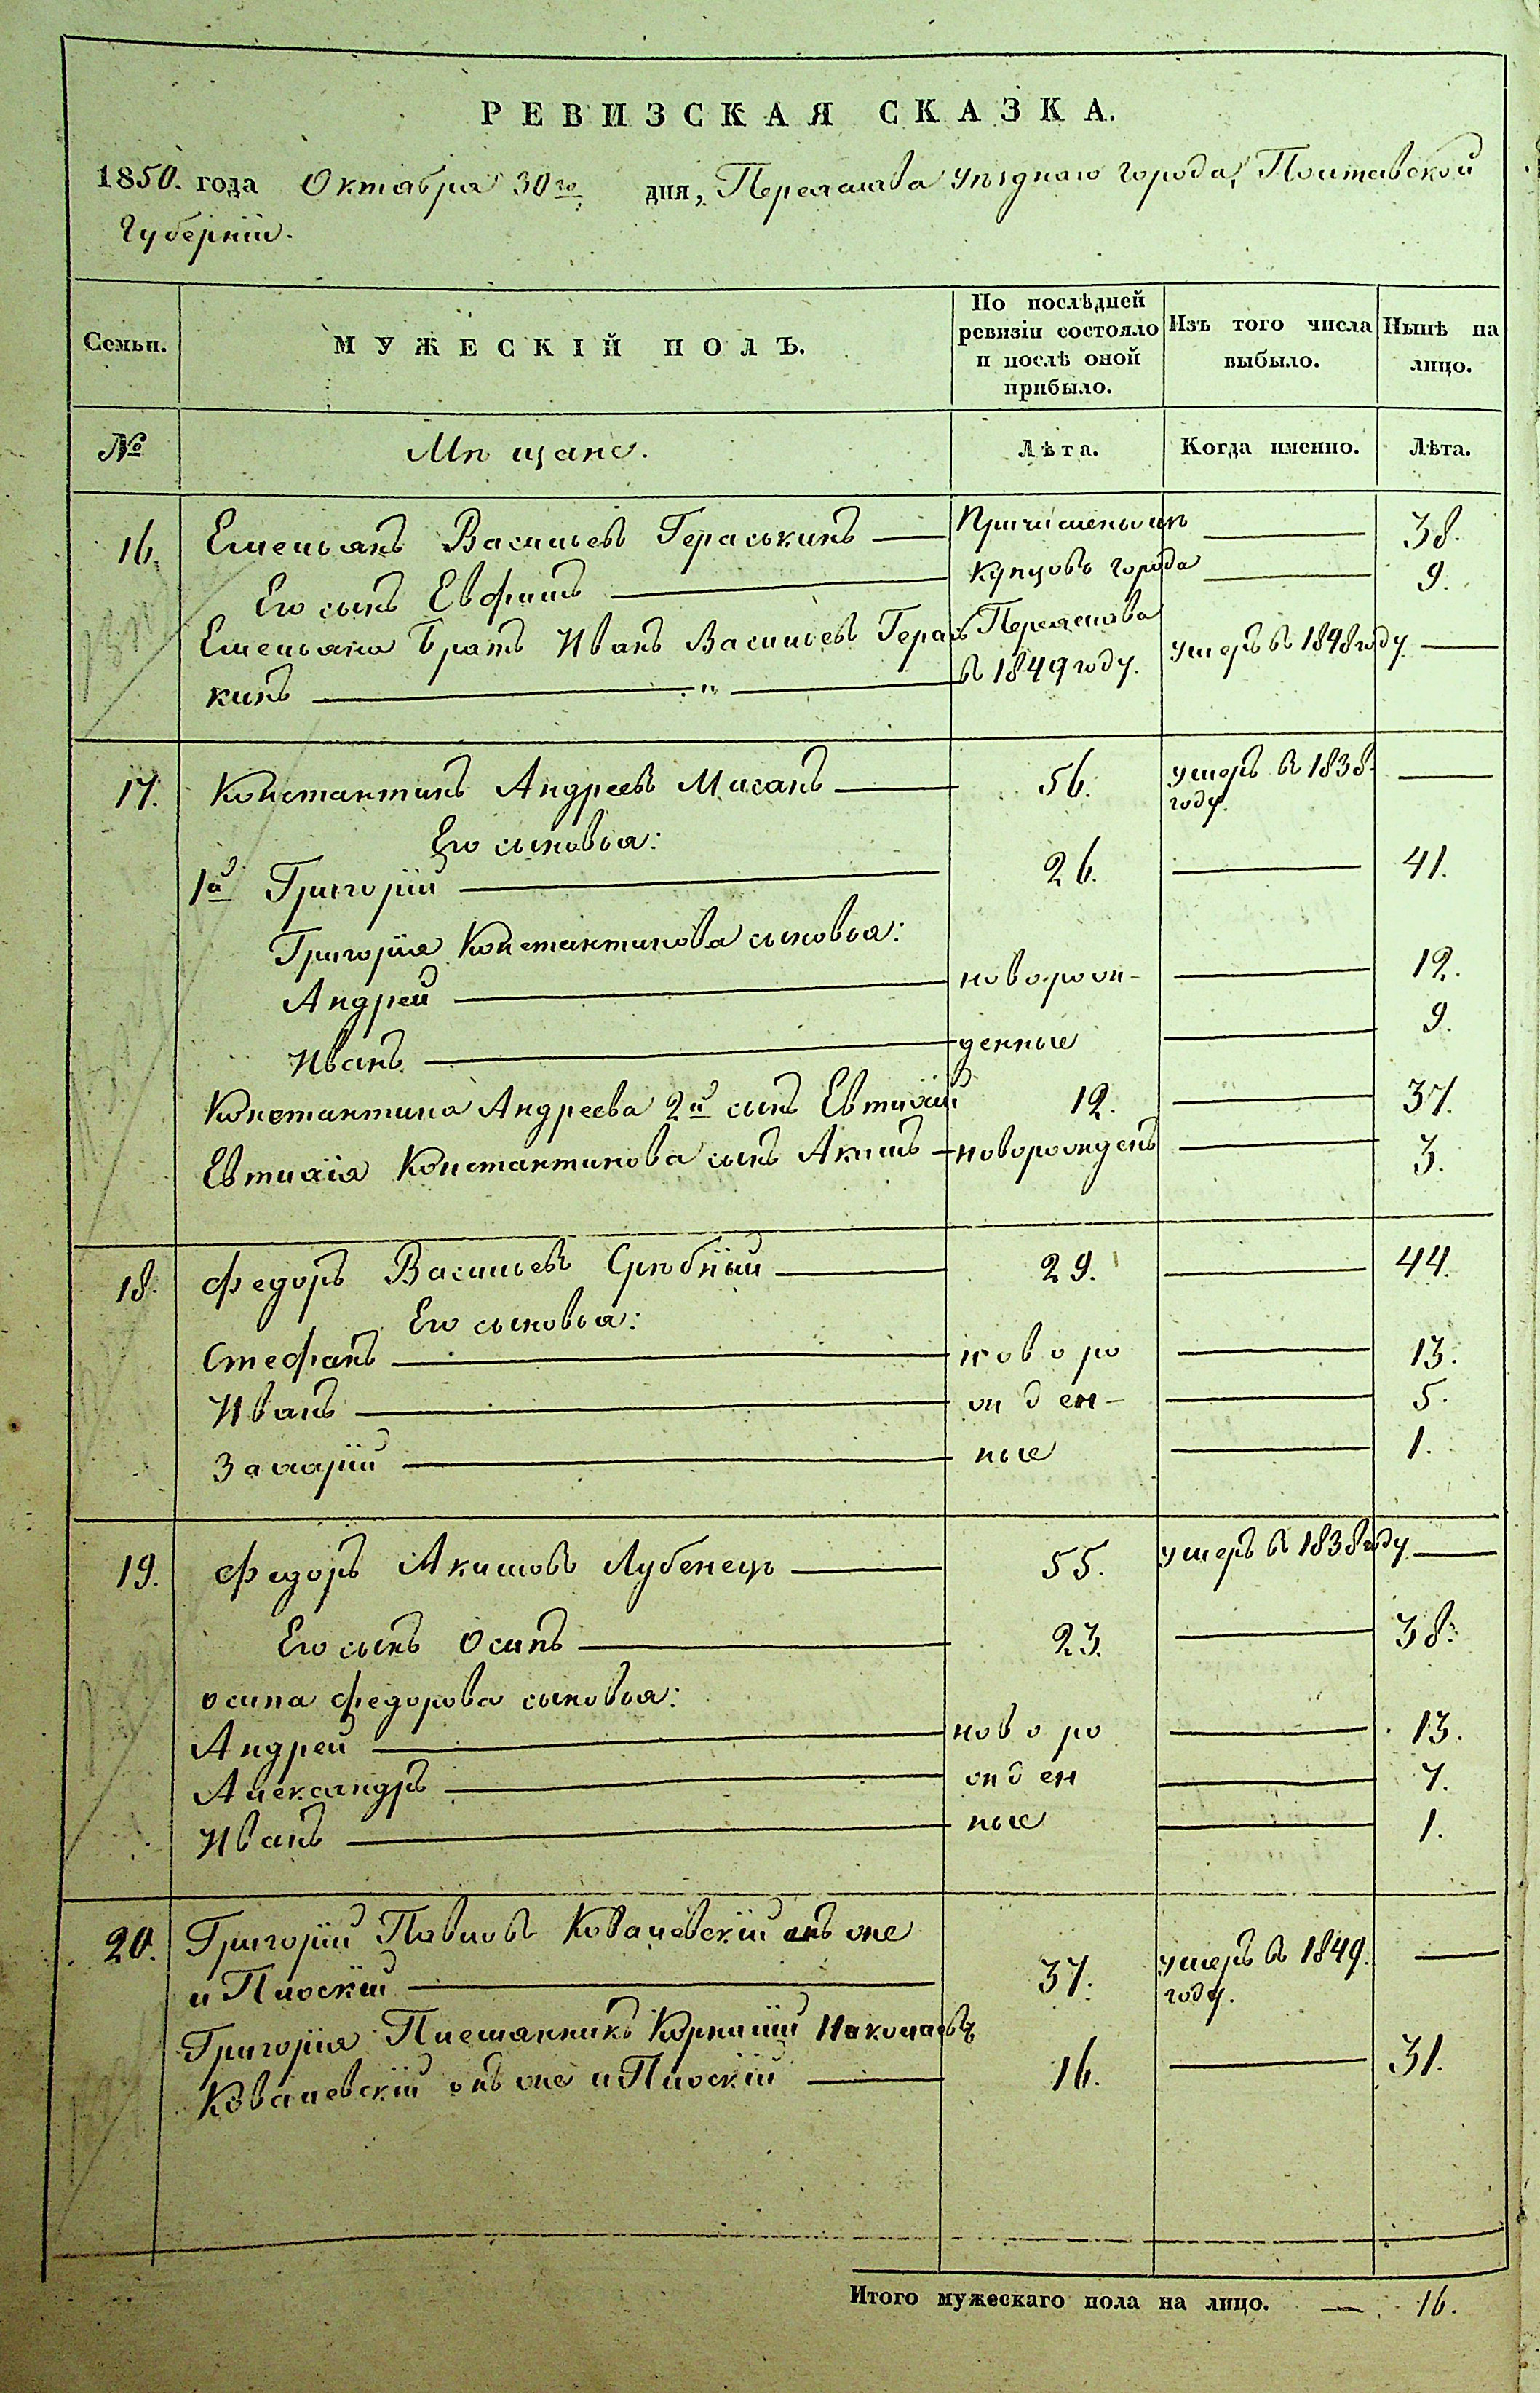 РЕВИЗСКАЯ СКАЗКА.
1850. года Октября 30го дня, Переяслава Уѣзднаго города, Полтавской
Губерніи.
Семьи.
МУЖЕСКІЙ ПОЛЪ.
По послѣдней ревизіи состояло и послѣ оной прибыло.
Изъ того числа выбыло.
Нынѣ на лицо.
№ Мѣщане. Лѣта. Когда именно. Лѣта.
16. Емельянъ Васильевъ Гераськинъ — Причисленъ изъ — 38.
Его сынъ Евфимъ — Купцовъ города — 9.
Емельяна Братъ Иванъ Васильевъ Герась Переяслава умеръ въ 1848 году —
кинъ — " — въ 1849 году.
17. Константинъ Андреевъ Мисанъ — 56. умеръ въ 1838. —
году.
Его сыновья:
1й Григорій — 26. — 41.
Григорія Константинова сыновья:
Андрей — новорож- — 12.
Иванъ — денные — 9.
Константина Андреева 2й сынъ Евтихій 12. — 37.
Евтихія Константинова сынъ Акимъ — новорожденъ — 3.
18. Федоръ Васильевъ Срѣбный — 29. — 44.
Его сыновья:
Стефанъ — новоро — 13.
Иванъ — жден- — 5.
Захарій — ные — 1.
19. Федоръ Акимовъ Лубенецъ — 55. умеръ въ 1838 году —
Его сынъ Осипъ — 23. — 38.
Осипа Федорова сыновья:
Андрей — новоро — 13.
Александръ — жден — 7.
Иванъ — ные — 1.
20. Григорій Павловъ Ковалевскій онъ же
и Плоскій — 37. умеръ въ 1849. —
году.
Григорія Племянникъ Корнилій Николаевъ
Ковалевскій онъ же и Плоскій — 16. — 31.
Итого мужескаго пола на лицо. — 16.